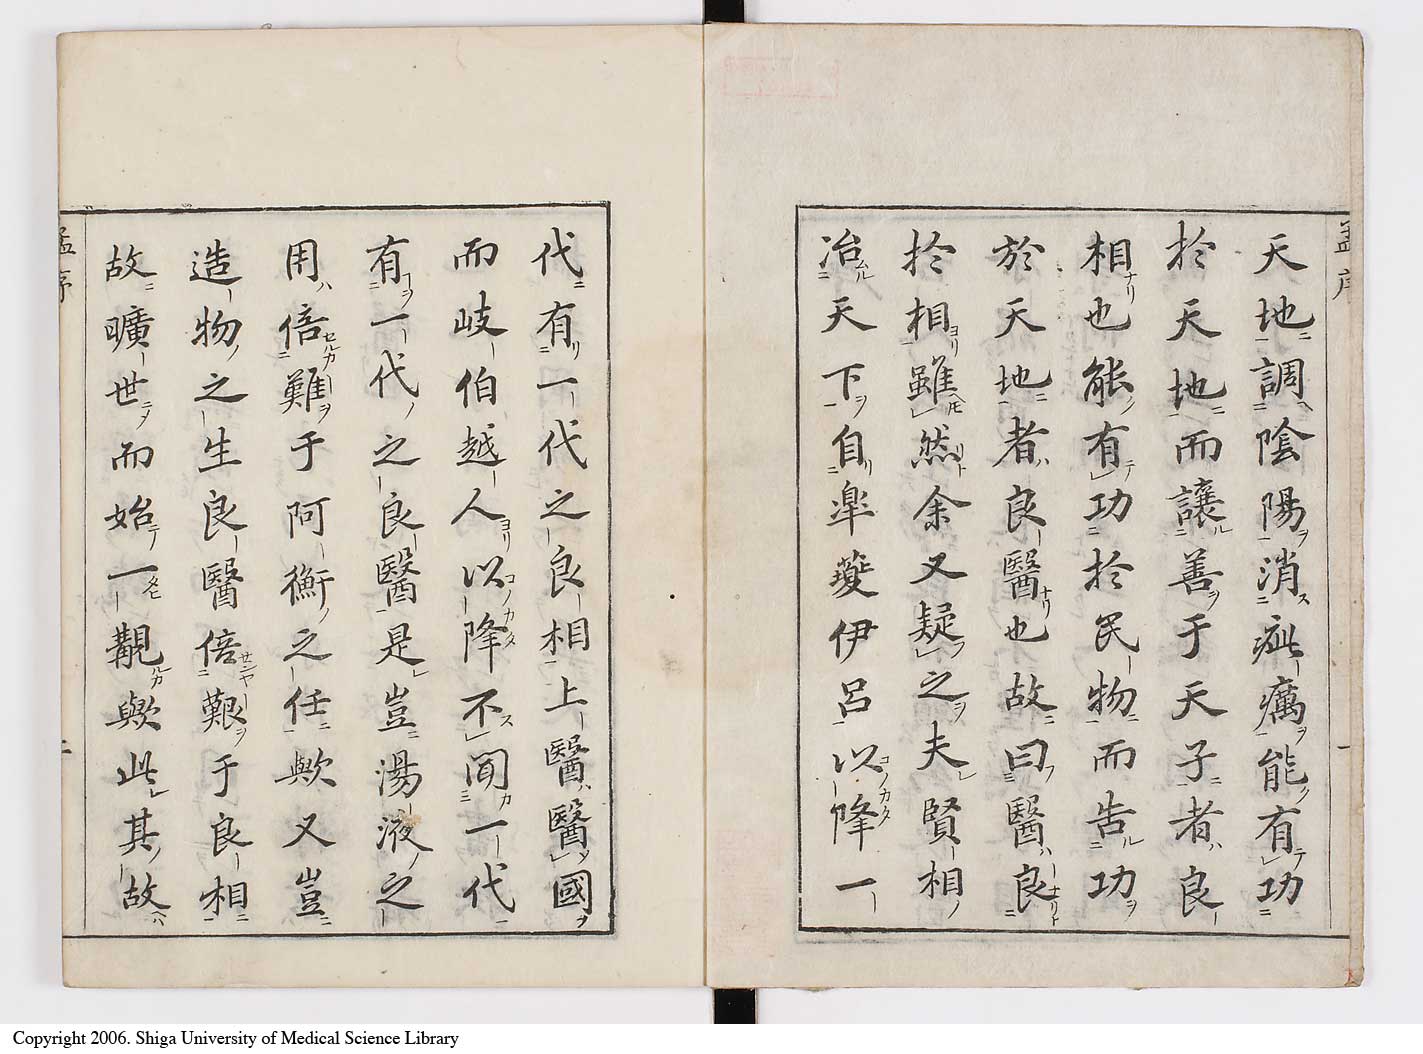 天地調陰陽消疵癘能有功
於天地而譲善于天子者良
相也能有功於民物而告功
於天地者良醫也故曰醫良
於相雖然余又疑之夫賢相
治天下自皐夔伊呂以降一
代有一代之良相上醫醫國
而岐伯越人以降不聞一代
有一代之良醫是豈湯液之
用倍難于阿衡之任歟又豈
造物之生良醫倍艱于良相
故曠世而始一覯歟此其故
孟序
一
孟序
二
Copyright 2006. Shiga University of Medical Science Library